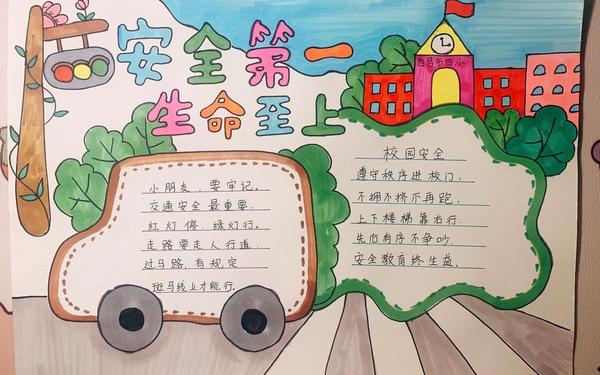 安全第一
生命至上
西昌市四小
小朋友,要牢记。
交通安全最重要.
红灯停,绿灯行。
走路要走人行道.
过马路,有规定
斑马线上才能行.
校园安全
遵守秩序进校门,
不拥不挤不再跑.
上下楼梯靠右行.
先后有序不争吵.
安全教育终生益.